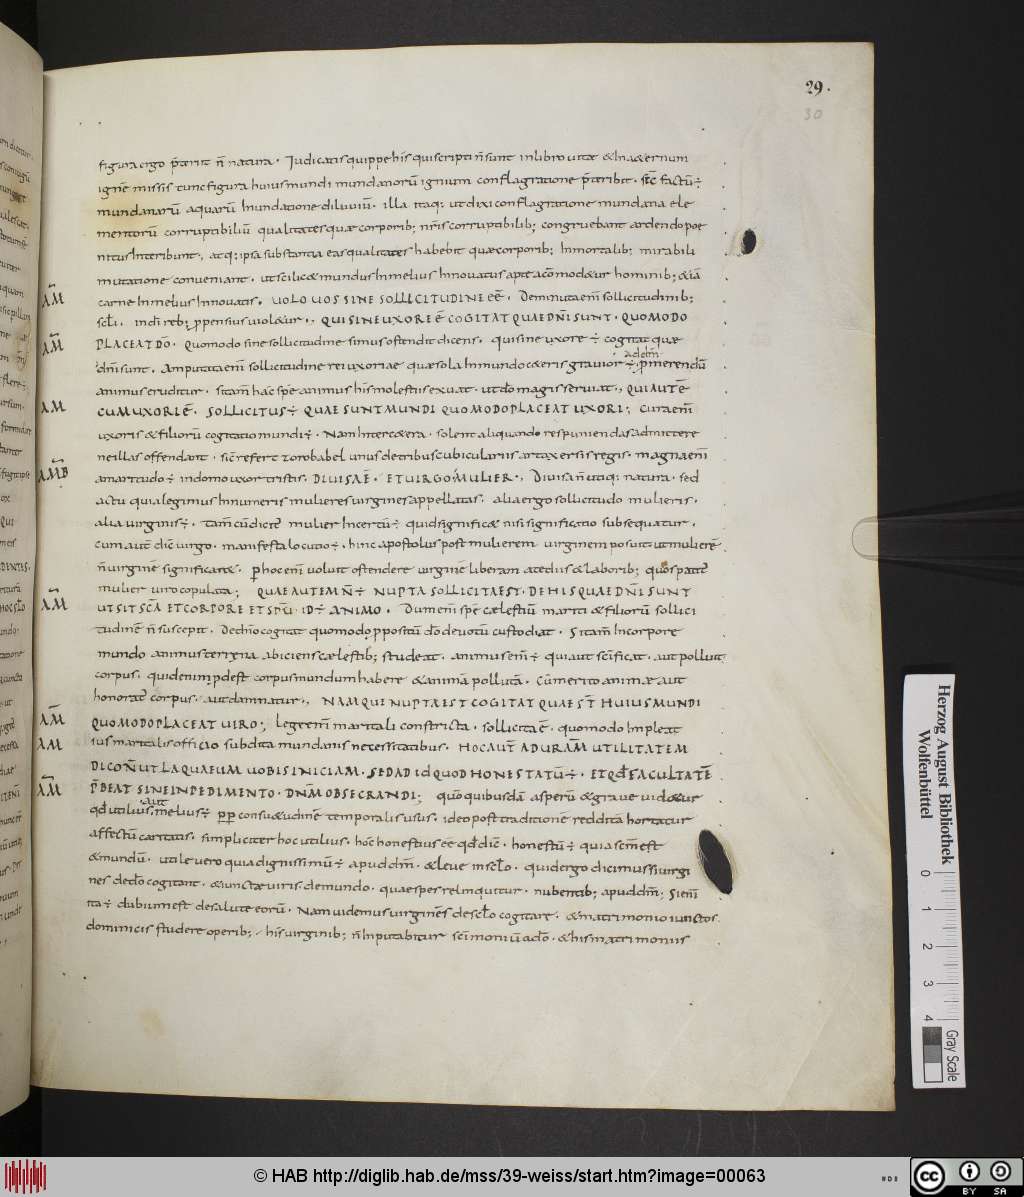 29.
30
figura ergo p̄terit n̄ natura. Iudicatis quippe his qui scripti n̄ sunt in libro uitae & in aeternum
ignē missis tunc figura huius mundi mundanorū ignium conflagratione p̄teribit. sic̄ factū ÷
mundanarū aquarū inundatione diluuiū. illa itaq; ut dixi conflagratione mundana ele
mentorū corruptibiliū qualitates quae corporib; nr̄is corruptibilib; congruebant ardendo poe
nitus interibunt, atq; ipsa substantia eas qualitates habebit quae corporib; inmortalib; mirabili
mutatione conueniant. ut scilic& mundus in melius innovatus apte acōmod&ur hominib; &iā
carne in melius innovatis. UOLO UOS SINE SOLLICITUDINE EĒ. Deminuta em̄ sollicitudinib;
AM̄
scl̄i. ind̄i reb; ppensius uiol&ur., QUI SINE UXORE Ē COGITAT QUAE DN̄I SUNT. QUOMODO
PLACEAT DŌ. Quomodo sine sollicitudine simus ostendit dicens. qui sine uxore ÷ cogitat quae
AM̄
ad dm̄
dn̄i sunt. Amputata em̄ sollicitudine rei uxoriae quae sola in mundo c&eris grauior ÷ p̄merendū
animus eruditur. sitam̄ hac spe animus his molestiis exuat. ut dō magis seruiat., QUI AUTĒ
AM
CUM UXORI Ē. SOLLICITUS ÷ QUAE SUNT MUNDI QUOMODO PLACEAT UXORI; Cura em̄
uxoris & filiorū cogitatio mundi ÷. Nam inter c&era. solent aliquando res puniendas admittere
ne illas offendant. sic̄ refert zorobabel unus de tribus cubiculariis artaxersis regis. magna em̄
AM̄B
amaritudo ÷ in domo uxor tristis. DIUISA Ē. ET UIRGO MULIER., Diuisa n̄ utiq; natura. sed
actu quia legimus in numeris mulieres uirgines appellatas. alia ergo sollicitudo mulieris.
alia uirginis ÷. tam̄ cū diceret mulier incertū ÷ quid significar& nisi significatio subsequatur.
cum autē dic̄ uirgo. manifesta locutio ÷. hinc apostolus post mulierem uirginem posuit. ut mulierē
n̄ uirginē significar&. p hoc em̄ uoluit ostendere uirginē liberam a tediis & laborib; quos patit̄
mulier uiro copulata; QUAE AUTEM N̄ ÷ NUPTA SOLLICITA EST. DE HIS QUAE DN̄I SUNT
AM̄
UT SIT SCĀ ET CORPORE ET SPŪ. ID ÷ ANIMO. Dum em̄ spē caelestiū mariti & filiorū sollici
tudinē n̄ suscepit. De dn̄o cogitat quomodo ppositū dō deuotū custodiat. Si tam̄ in corpore
mundo animus terrena abiciens caelestib; studeat. animus em̄ ÷ qui aut sc̄ificat. aut polluit
corpus. quid enim pdest corpus mundum habere & animā pollutā. Cū merito animae aut
honorat̄ corpus. aut damnatur., NAM QUE NUPTA EST COGITAT QUAE ST̄ HUIUS MUNDI
AM̄
QUOMODO PLACEAT UIRO; Lege em̄ maritali constricta. sollicita ē. quomodo impleat
AM
ius maritalis officio subdita mundanis necessitatibus. HOC AUT̄ AD URAM̄ UTILITATEM
DICO N̄ UT LAQUAEUM UOBIS INICIAM. SED AD ID QUOD HONESTATŪ ÷. ET QD̄ FACULTATĒ
AM̄
P̄BEAT SINE INPEDIMENTO. DN̄M OBSECRANDI; quō quibusdā asperū & graue uid&ur
aut
qd̄ utilius. melius ÷ pp consu&udinē temporalis usus. ideo post traditionē reddita hortatur
affectū caritatis. simpliciter hoc utilius. hoc honestius eē qd̄ dic̄. honestū ÷ quia scm̄ est
& mundū. utile uero quia dignissimū ÷ apud dm̄. & leue in sclō. quid ergo dicimus si uirgi
nes de dō cogitant. & iunctae uiris de mundo. quae spes relinquitur. nubentib; apud dm̄; Si em̄
ita ÷ dubium est de salute eorū. Nam uidemus uirginēs de sclō cogitare. & matrimonio iunctos
dominicis studere operib;. his uirginib; n̄ inputabitur sc̄imoniū a dō. & his matrimoniis
Herzog August Bibliothek
Wolfenbüttel
0 1 2 3 4
Gray Scale
© HAB http://diglib.hab.de/mss/39-weiss/start.htm?image=00063
cc BY SA